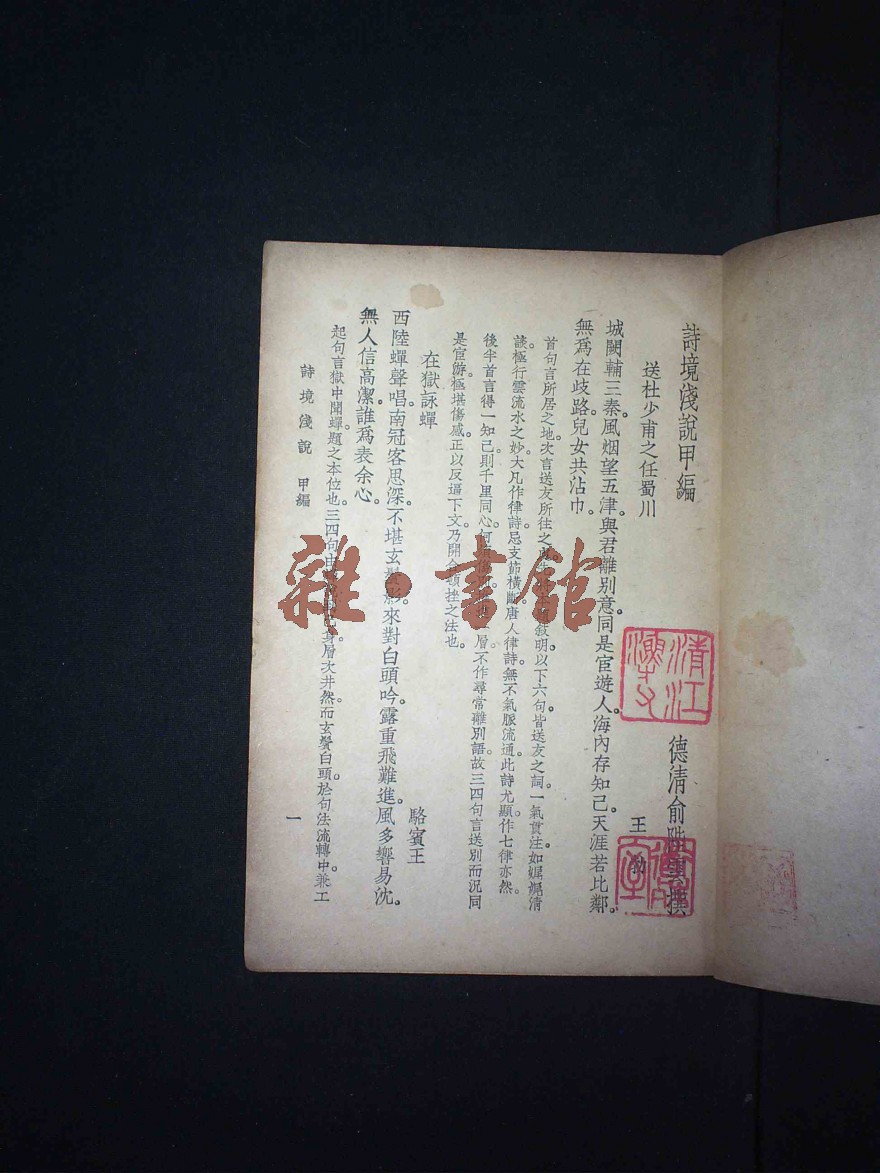 詩境淺說甲編
德清俞陛雲撰
送杜少甫之任蜀川
王勃
城闕輔三秦。風烟望五津。與君離别意。同是宦遊人。海內存知己。天涯若比鄰。
無爲在歧路。兒女共沾巾。
首句言所居之地。次言送友所往之
敍明。以下六句。皆送友之詞。一氣貫注。如娓娓清
談。極行雲流水之妙。大凡作律詩。忌支節橫斷。唐人律詩。無不氣脈流通。此詩尤顯。作七律亦然。
後半首言得一知己。則千里同心。何
層。不作尋常離別語。故三四句言送別而況同
是宦游。極堪傷感。正以反逼下文。乃開合頓挫之法也。
在獄詠蟬
駱賓王
西陸蟬聲唱。南冠客思深。不堪玄鬢影。來對白頭吟。露重飛難進。風多響易沈。
無人信高潔。誰爲表余心。
起句言獄中聞蟬。題之本位也。三四句由
身。層次井然。而玄鬢白頭。於句法流轉中。兼工
詩境淺說 甲編
一
雜·書館
清江